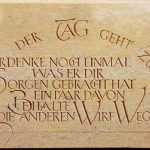 DER TAG GEHT ZU
ÜRDENKE NOCH EINMAL
WAS ER DIR
SORGEN GEBRACHT HAT
EIN PAAR DAVON
BEHALTE
DIE ANDEREN WIRF WEG